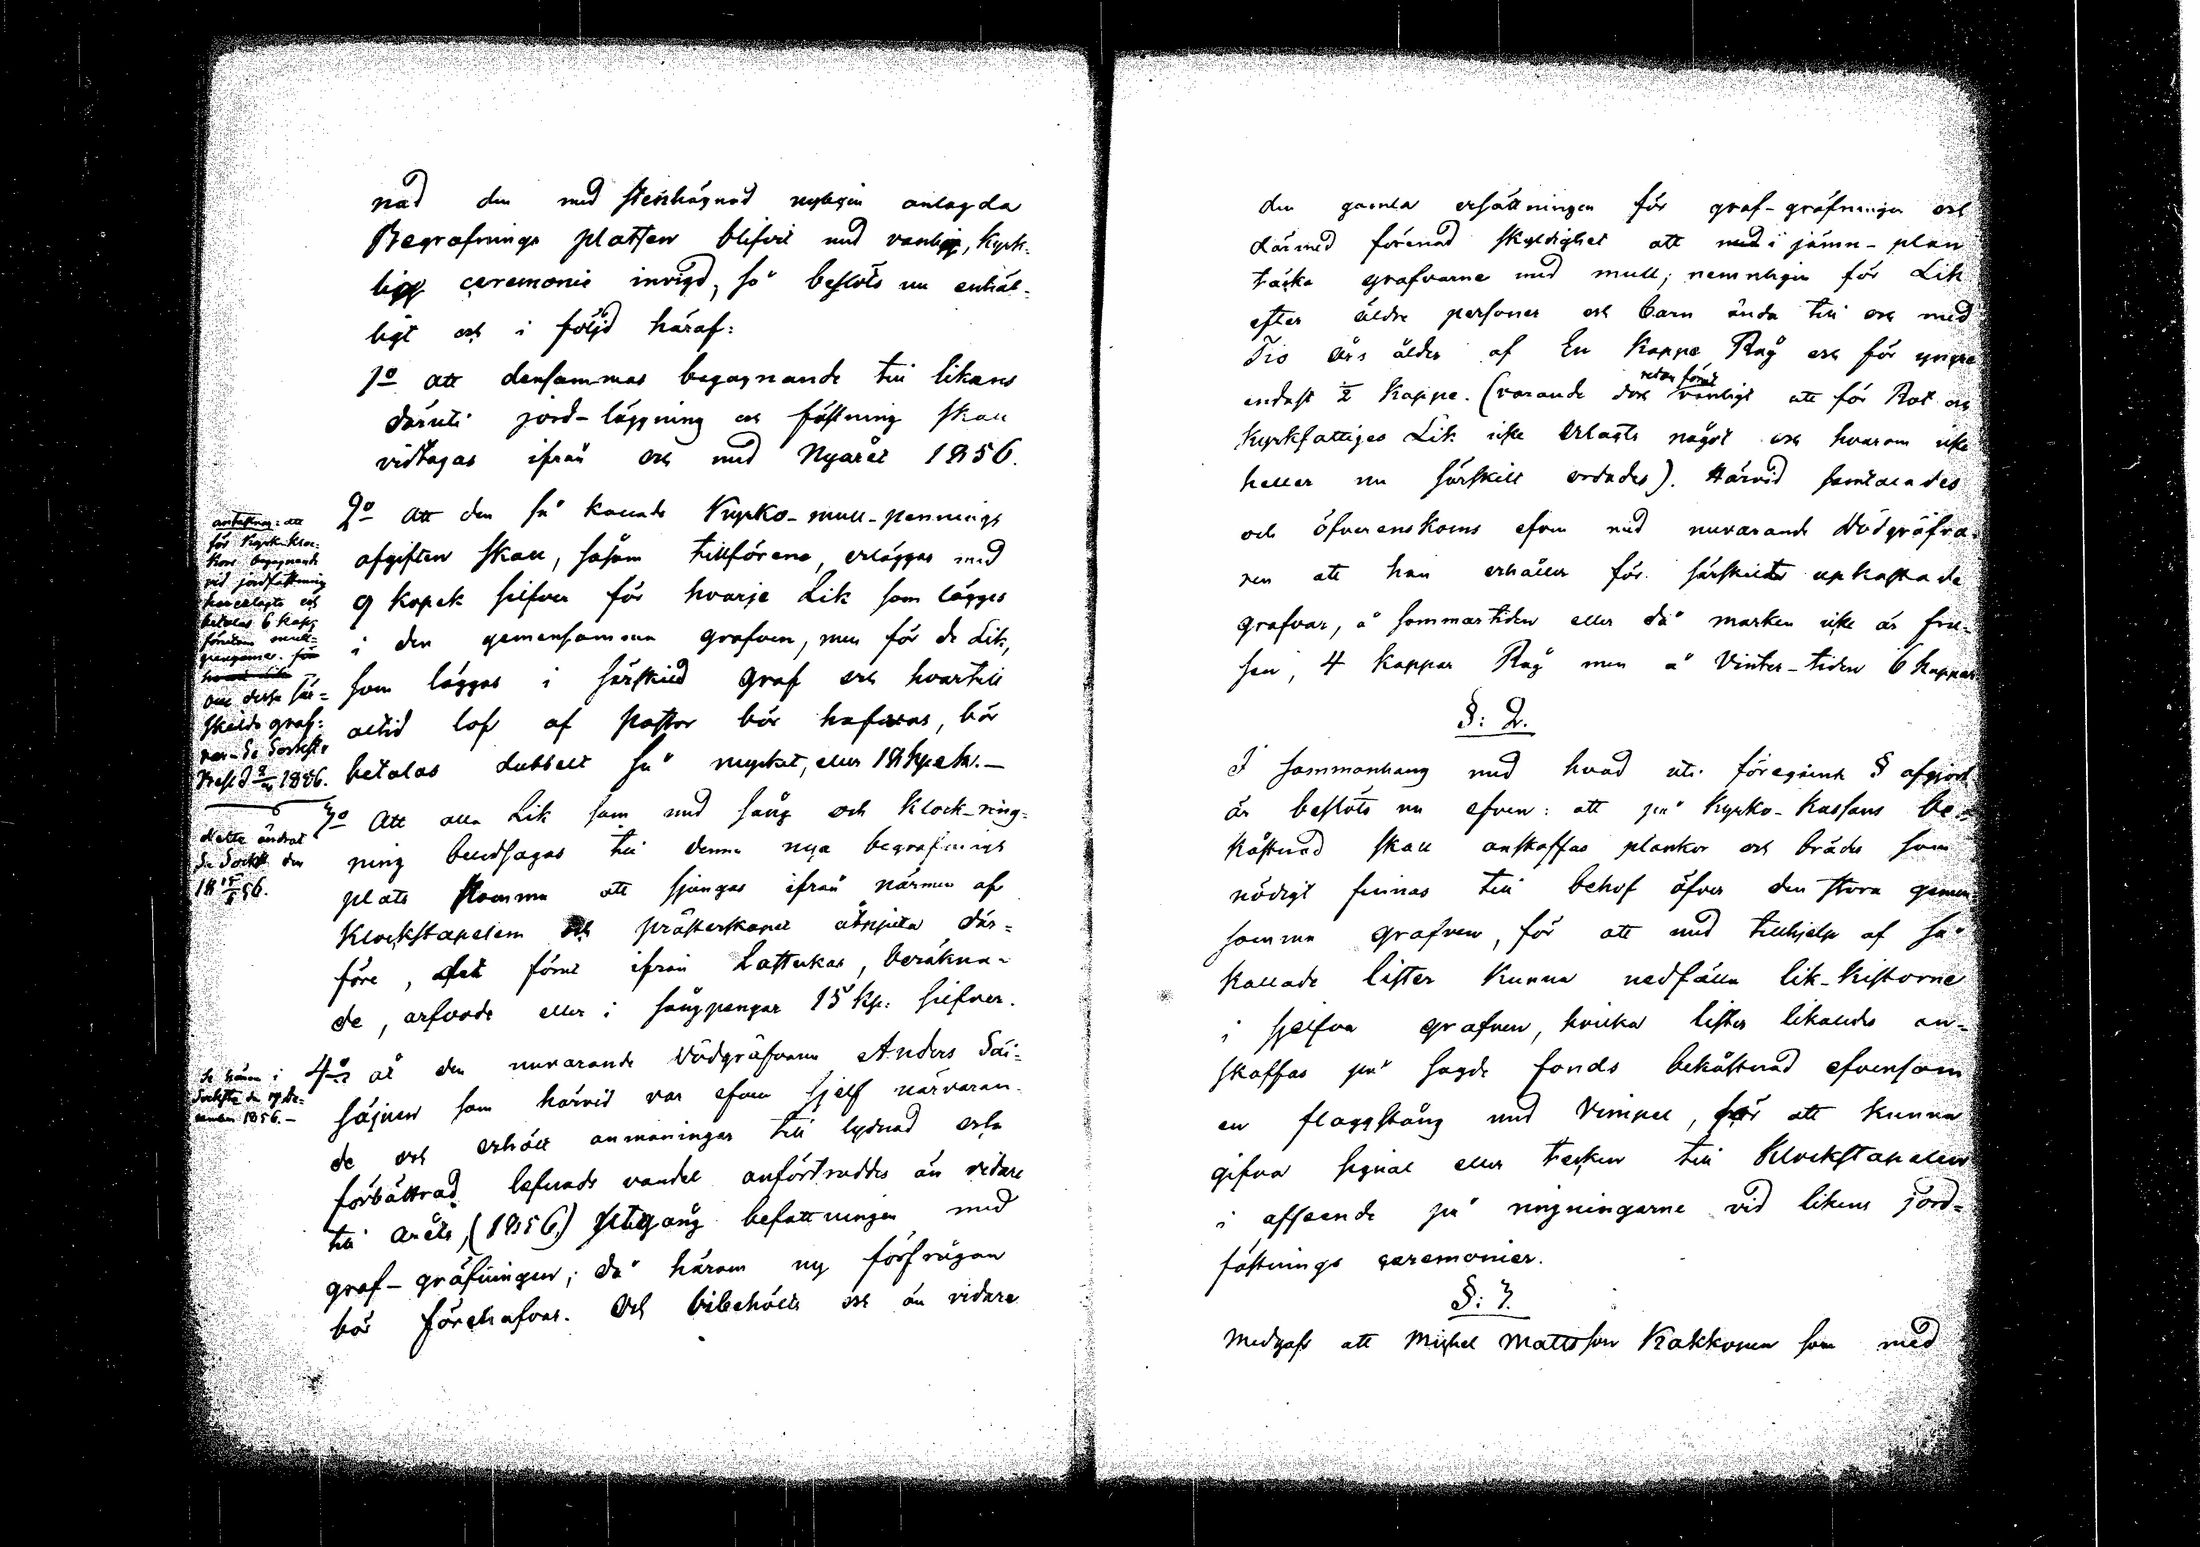 nad den med stenhägnad nyligen anlagda
Begrafnings platsen blifvit med vanlig, Kyrk-
lig ceremonie invigd, så beslöts nu enhäl-
ligt och i följd häraf:
1o att densammas begagnande till likens
däruti jord-läggning och fästning skall
vidtagas ifrån och med Nyåret 1856.
2o att den så kallade Kyrko-mull-pennings
afgiften skall, såsom tillförene, erläggas med
9 kopek silfver för hvarje Lik som lägges
i den gemensamma grafven, men för de Lik,
som läggas i särskild graf och hvartill
altid lof af Pastor bör hafvas, bör
betalas dubbelt så mycket, eller 18 kpek.—
3o Att alla Lik som med sång och Klock-ring-
ning beledsagas till denna nya begrafnings
plats komma att sjungas ifrån närmen af
Klockstapelen och prästerskapet åtnjuta där-
före, det förut ifrån Latterkar, beräkna-
de, arfvode eller i sångpengar 15 kp: silfver.
4o åt den nuvarande Dödgräfvaren Anders Säi-
säjnen som härvid var efven sjelf närvaran-
de och erhölt anmaningar till lydnad och
förbättrad lefnads vandel anförtroddes än vidare
till årets, (1856) utgång befattningen med
graf-gräfningen; då härom ny förfrågan
bör förehafvas. Och bibehölls och än vidare
anteckning: att
för Kyrk-Kloc-
kors begagnande
vid jordfästning
betalas 6 kop
förutom mull-
pengarne. för
om desse sär-
skilda graf-
var. Se Sockst:
1856.
detta ändrat
Se Sockst den
18 56.
Se härom i
Sockst: den 17 De-
cember 1856.—
den gamla ersättningen för graf-gräfningen och
därmed förenad skyldighet att med i jämn-plan
täcka grafvarne med mull; nemnligen för Lik
efter äldre personer och barn ända till och med
Tio års ålder af En Kappe Råg och för yngre
endast ½ Kappe. (varande dock redan förut vanligt att för Rot och
Kyrkfattiges Lik icke erlagts något och hvarom icke
heller nu särskilt ordades). Härvid samtalades
och öfverenskoms efven med nuvarande Dödgräfva-
ren att han erhåller för särskildt upkastade
grafvar, å sommartiden eller då marken icke är fru-
sen, 4 Kappar Råg men å Vinter-tiden 6 kappar
§: 2.
I sammanhang med hvad uti föregående § afgjort
är beslöts nu efven: att på Kyrko-Kassans be-
kåstnad skall anskaffas plankor och bräder som
nödigt finnas till behof öfver den stora gemen-
samma grafven, för att med tillhjelp af så
kallade lister kunna nedfälla lik-kistorne
i sjelfva grafven, hvilka lister likaledes an-
skaffas på sagde fonds bekåstnad efvensom
en flaggstång med Vimpel, för att kunna
gifva signal eller tecken till Klockstapelen
i afseende på ringningarne vid likens jord-
fästnings ceremonier.
§: 3.
Medgafs att Michel Mattsson Kakkonen som med